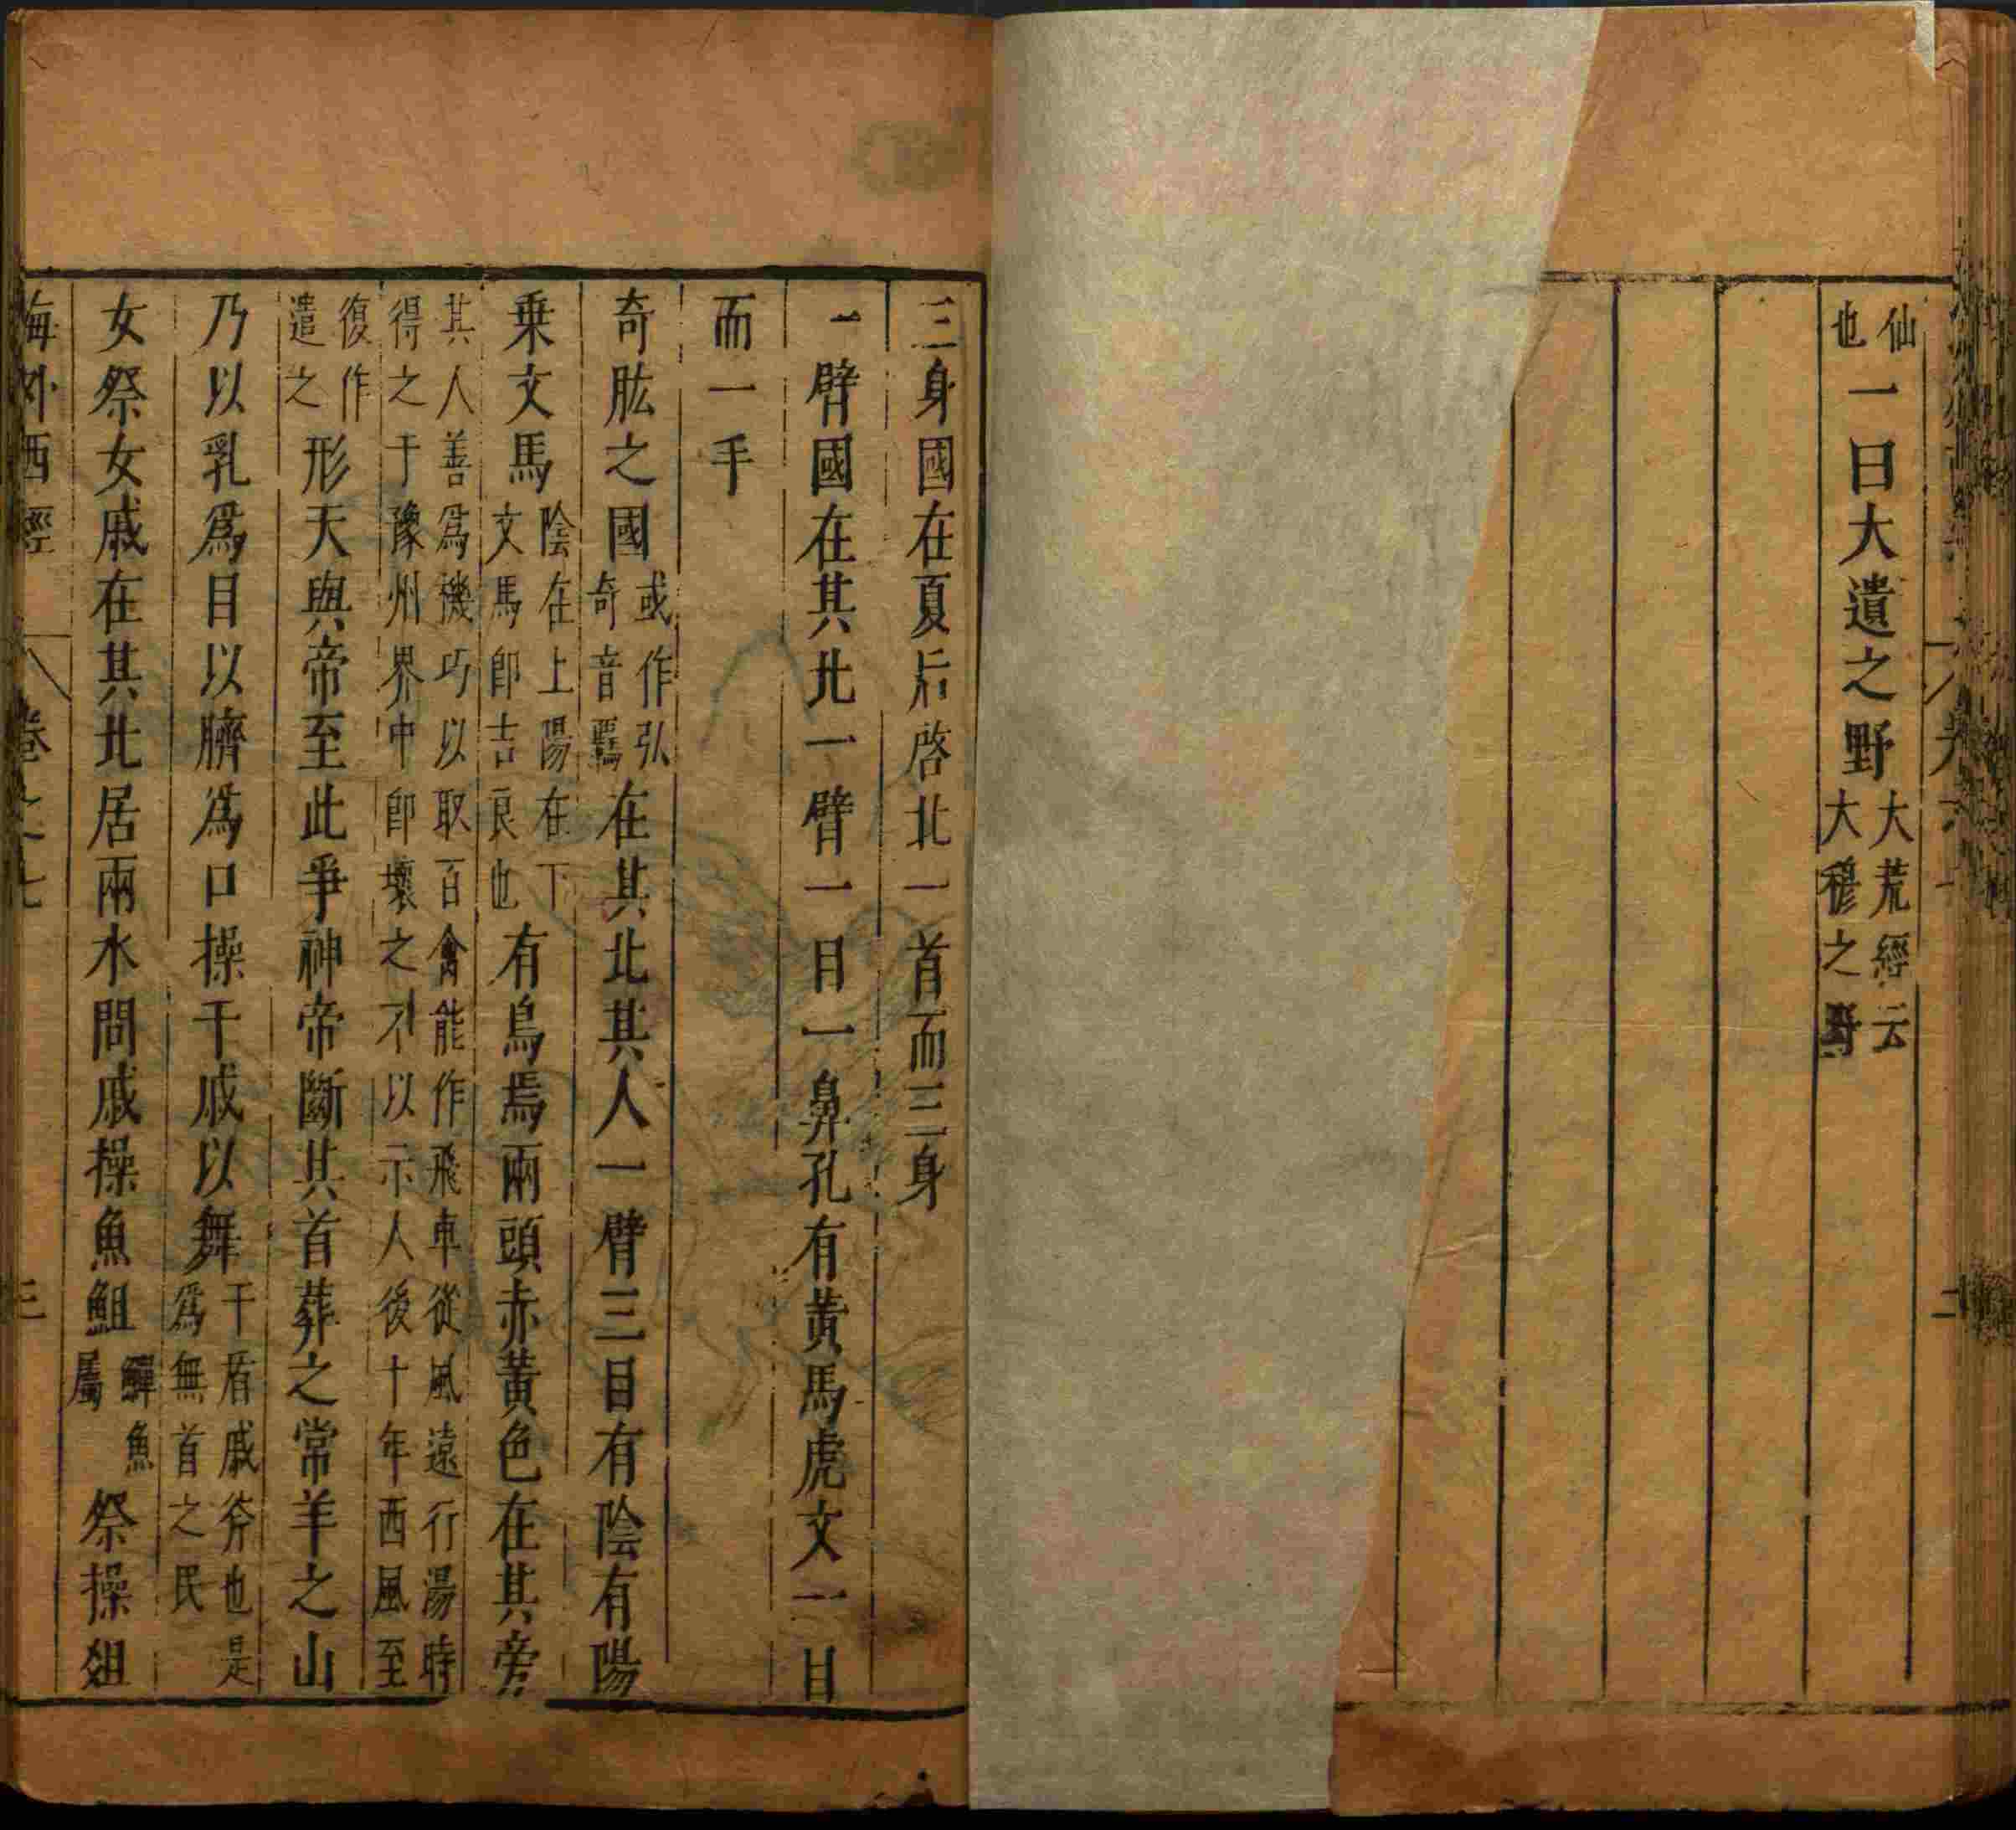 仙也一曰大遺之野大荒經云大穆之野
三身國在夏后啓北一首而三身
一臂國在其北一臂一目一鼻孔有黃馬虎文一目
而一手
奇肱之國或作弘奇音羈在其北其人一臂三目有陰有陽
乗文馬陰在上陽在下文馬卽吉良也有鳥焉兩頭赤黃色在其旁
其人善爲機巧以取百禽能作飛車從風遠行湯時得之于豫州界中卽壞之不以示人後十年西風至
復作遣之形天與帝至此爭神帝斷其首葬之常羊之山
乃以乳爲目以臍爲口操干戚以舞干盾戚斧也是爲無首之民
女祭女戚在其北居兩水間戚操魚䱉鱓魚屬祭操俎
海外西經 卷之七 三